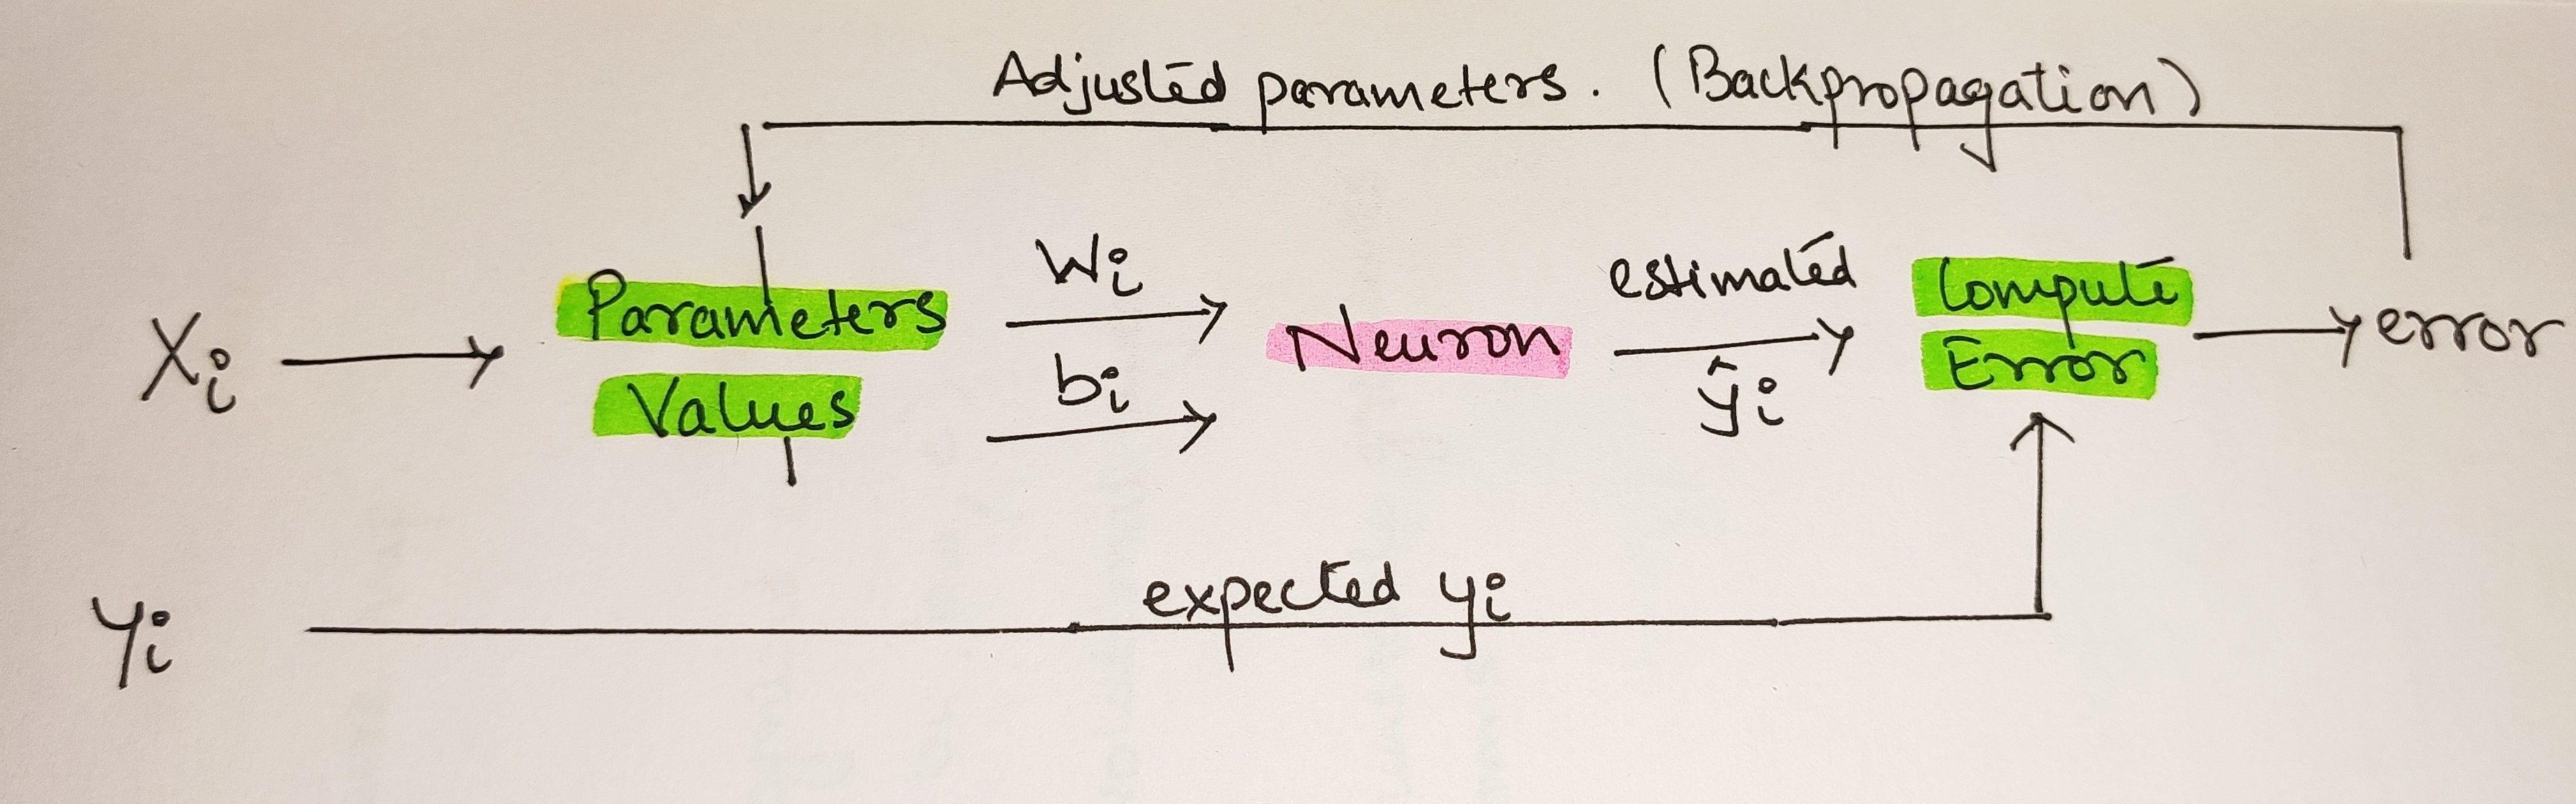 Adjusted parameters. (Backpropagation)
Xi
Parameters
Values
Wi
bi
Neuron
estimated
ŷi
Compute
Error
error
yi
expected yi